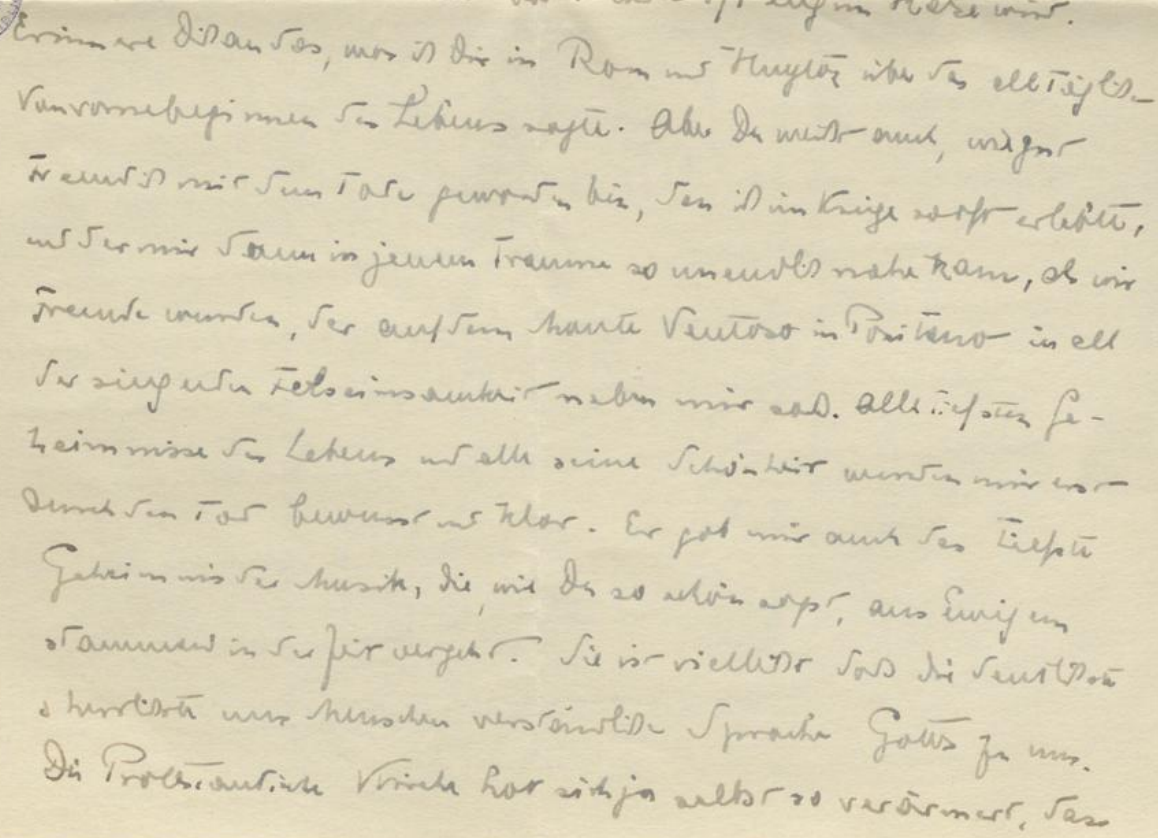 wird.
Erinnere Dich an das, was ich Dir in Rom und über das alltägliche
Vonvornebeginnen des Lebens sagte. Aber Du weißt auch, wie gut
Freund ich mit dem Tode geworden bin, den ich im Kriege so oft erlebte,
und der mir dann in jenem Traume so unendlich nahe kam, als wir
Freunde wurden, der auf dem Monte Ventoso in Positano in all
der singenden Felseinsamkeit neben mir saß. Alle tiefsten Ge-
heimnisse des Lebens und alle seine Schönheit wurden mir erst
durch den Tod bewusst und klar. Er gab mir auch das tiefste
Geheimnis der Musik, die, wie Du so schön sagst, aus Ewigem
stammend in der Zeit vergeht. Sie ist vielleicht doch die deutlichste
& herrlichste uns Menschen verständliche Sprache Gottes zu uns.
Die Protestantische Kirche hat sich ja selbst so verärmert, dass